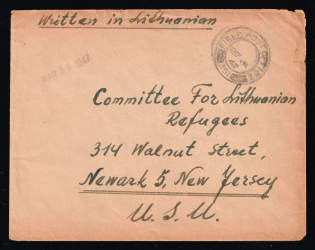 Written in Lithuanian
FIELD POST OFFICE
Committee For Lithuanian
Refugees
314 Walnut Street,
Newark 5, New Jersey
U. S. A.